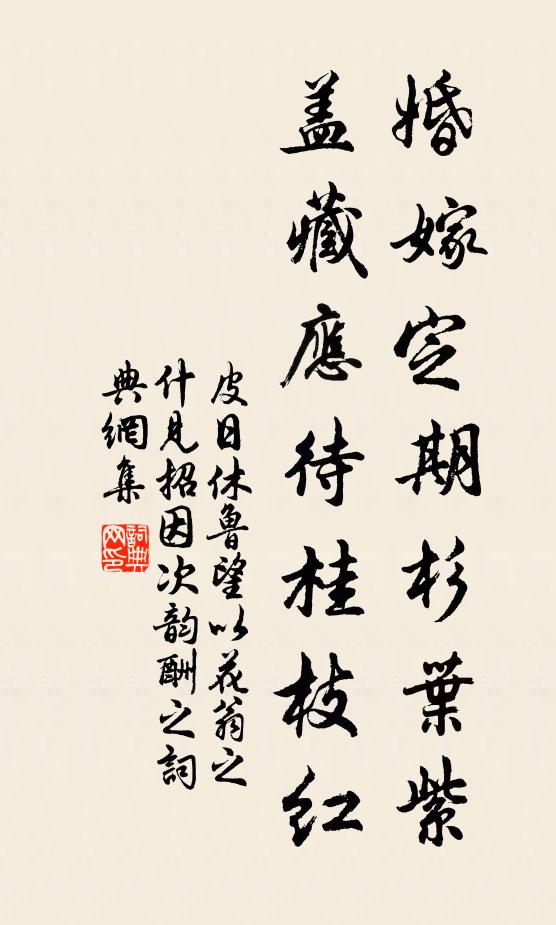 婚嫁定期杉葉紫
盖藏應待桂枝红
皮日休魯望以花翁之
什見招因次韵酬之詞
典網集
詞典網印